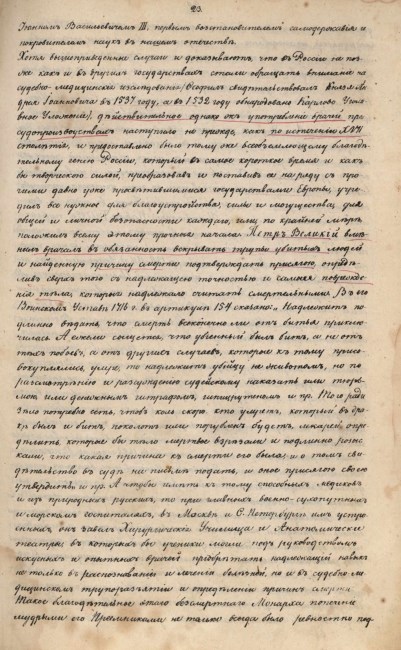 23.
Іоанномъ Васильевичемъ III, первымъ возстановителемъ самодержавія и
покровителемъ наукъ въ нашемъ отечествѣ.
Хотя вышеприведенные случаи и доказываютъ, что въ Россіи такъ
же какъ и въ другихъ государствахъ стали обращать вниманіе на
судебно-медицинскія изслѣдованія, (осмотръ свидѣтельствовалъ Князя Ан-
дрея Іоанновича въ 1537 году, а въ 1532 году обнародовано Карлово Уголов-
ное Уложеніе), дѣйствительное однако же употребленіе врачей при
судопроизводствахъ наступило не прежде, какъ по истеченіи XVII
столѣтія, и предоставлено было тому же всеобъемлющему благодѣ-
тельному генію Россіи, который въ самое короткое время и какъ
бы творческою силой, преобразовалъ и поставилъ ее на ряду съ про-
чими давно уже просвѣтившимися государствами Европы, учре-
дилъ все нужное для благоустройства, силы и могущества, для
общей и личной безопасности каждаго, или по крайней мѣрѣ
положилъ всему этому прочное начало. Петръ Великій вмѣ-
нилъ врачамъ въ обязанность вскрывать трупы убитыхъ людей
и найденную причину смерти подтверждать присягою, опредѣ-
ливъ сверхъ того съ надлежащею точностью и самыя поврежде-
нія тѣла, которыя надлежало считать смертельными. Въ его
Воинскомъ Уставѣ 1716 г. въ артикулѣ 154 сказано: „Надлежитъ по-
длинно вѣдать, что смерть всеконечно ли отъ битья приклю-
чилась. А ежели сыщется, что убіенный былъ битъ, а не отъ
тѣхъ побоевъ, а отъ другихъ случаевъ, которые къ тому присо-
вокупились, умре, то надлежитъ убійцу не животомъ, но по
разсмотрѣнію и разсужденію судейскому наказать или тюрь-
мою или денежнымъ штрафомъ, шпицрутеномъ и пр. Того ради
зѣло потребно есть, чтобъ коль скоро кто умретъ, который въ дра-
кѣ былъ и битъ, поколотъ или порубленъ будетъ, лекарей опре-
дѣлить, которые бы тѣло мертвое взрѣзали и подлинно розыс-
кали, что какая причина къ смерти его была; и о томъ сви-
дѣтельство въ судѣ на письмѣ подать, и оное присягою своею
утвердить“ и пр. А чтобы имѣть къ тому способныхъ медиковъ
и изъ природныхъ русскихъ, то при главныхъ военно-сухопутныхъ
и морскомъ госпиталяхъ, въ Москвѣ и С. Петербургѣ имъ устро-
енныхъ онъ завелъ Хирургическія Училища и Анатомическіе
театры, въ которыхъ бы ученики могли подъ руководствомъ
искусныхъ и опытныхъ врачей пріобрѣтать надлежащій навыкъ
не только въ распознаваніи и леченіи болѣзней, но и въ судебно-ме-
дицинскомъ трупоразъятіи и опредѣленіи причинъ смерти.
Такое благодѣтельное этого безсмертнаго Монарха попеченіе
мудрыми его Преемниками не только всегда было ревностно под-